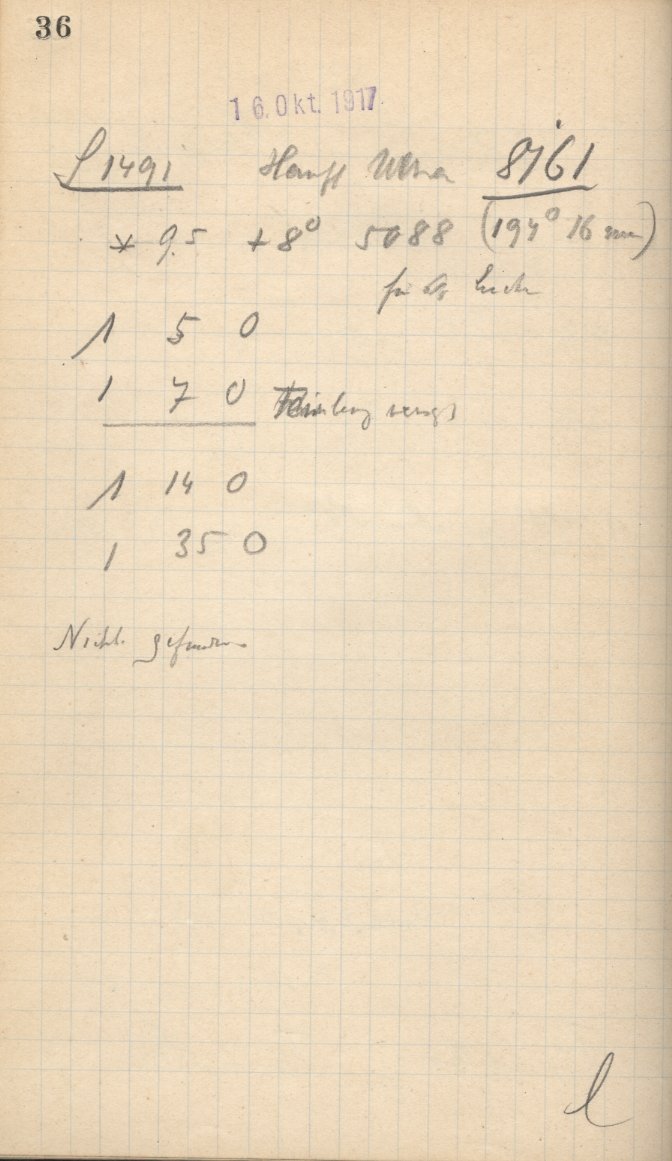 36
16. Okt. 1917
S 1491 Hauff Ultra 8761
* 9.5 +8° 5088 (194° 16 mm)
für
1 5 0
1 7 0
1 14 0
1 35 0
Nicht gefunden
l